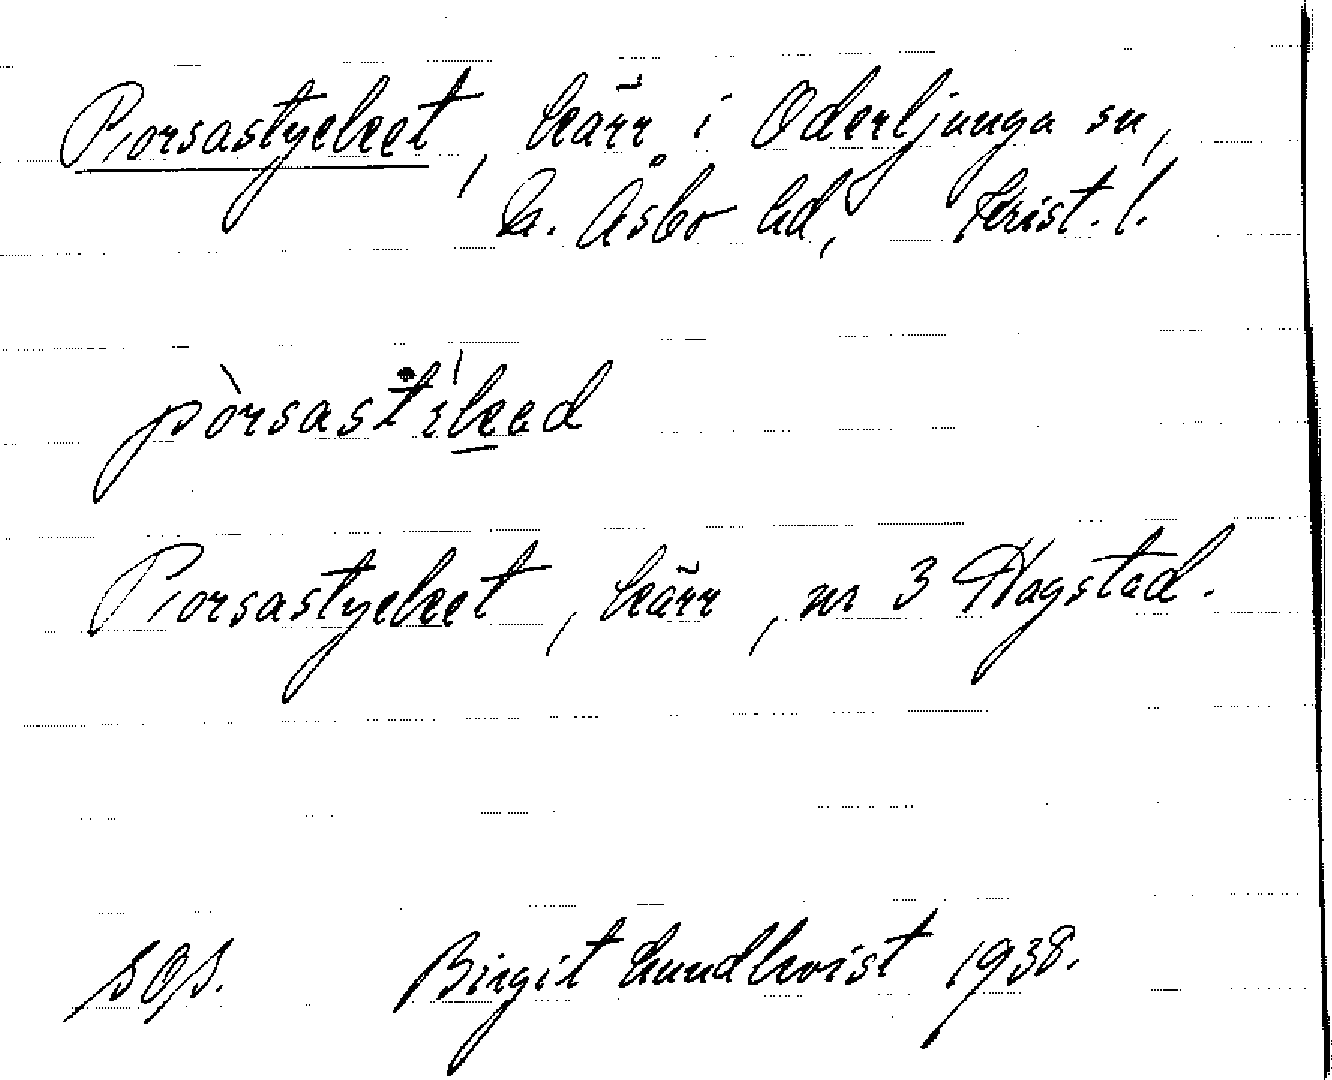 Porsastycket, kärr i Oderljunga sn,
N. Åsbo hd, Krist. l.
pòrsastikad
Porsastycket, kärr, nr 3 Hagstad.
SOS. Birgit Lundkvist 1938.